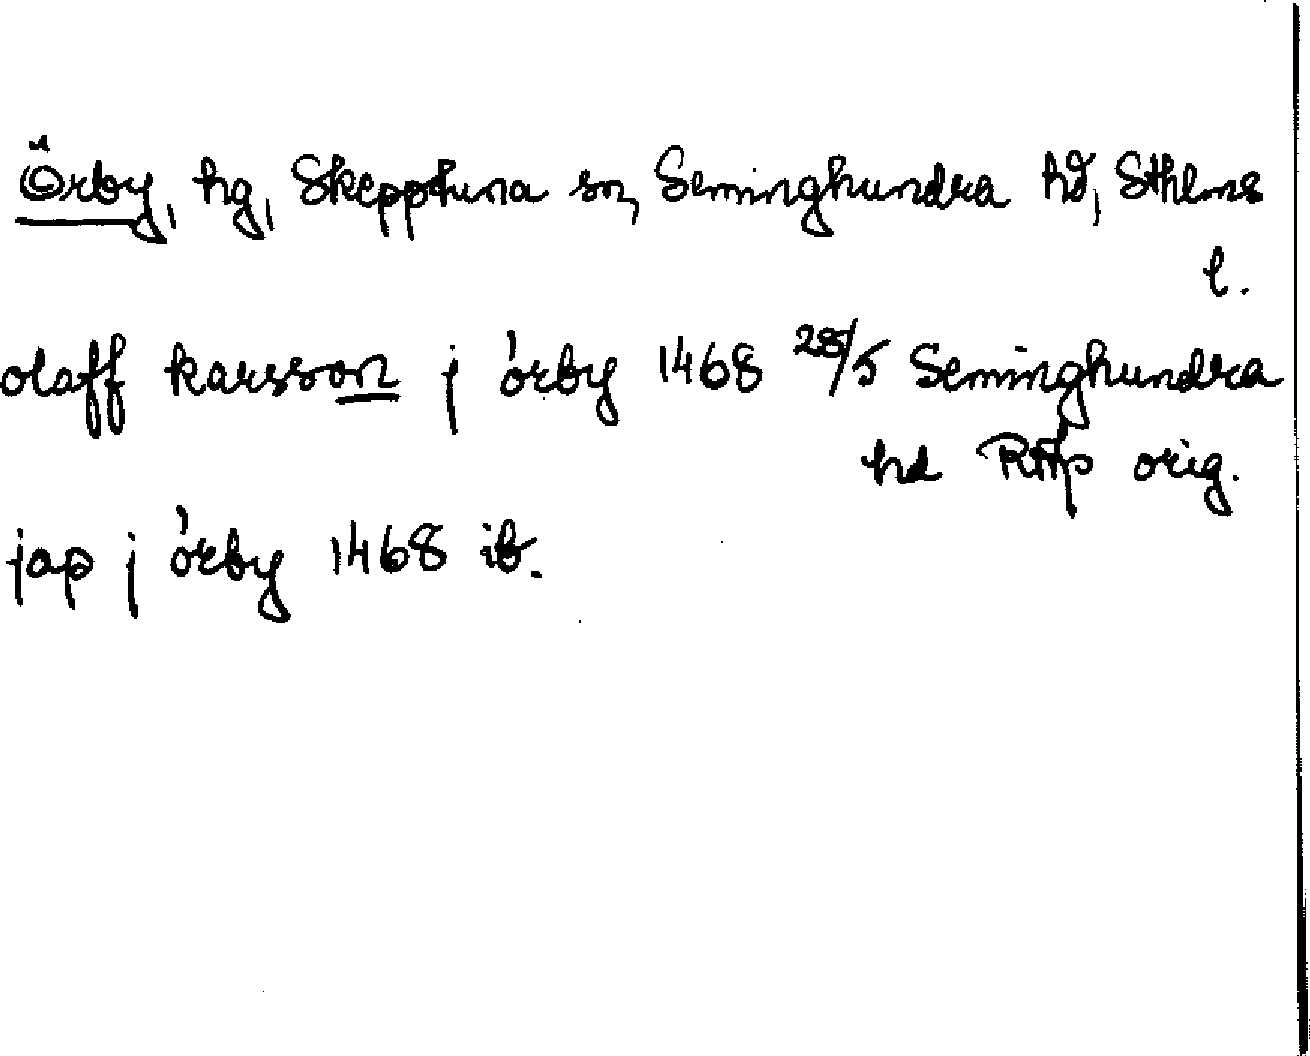 Örby, hg, Skepptuna sn, Seminghundra hd, Sthlms
l.
olaff karsson j örby 1468 28/5 Seminghundra
hd RAp orig.
jap j örby 1468 ib.